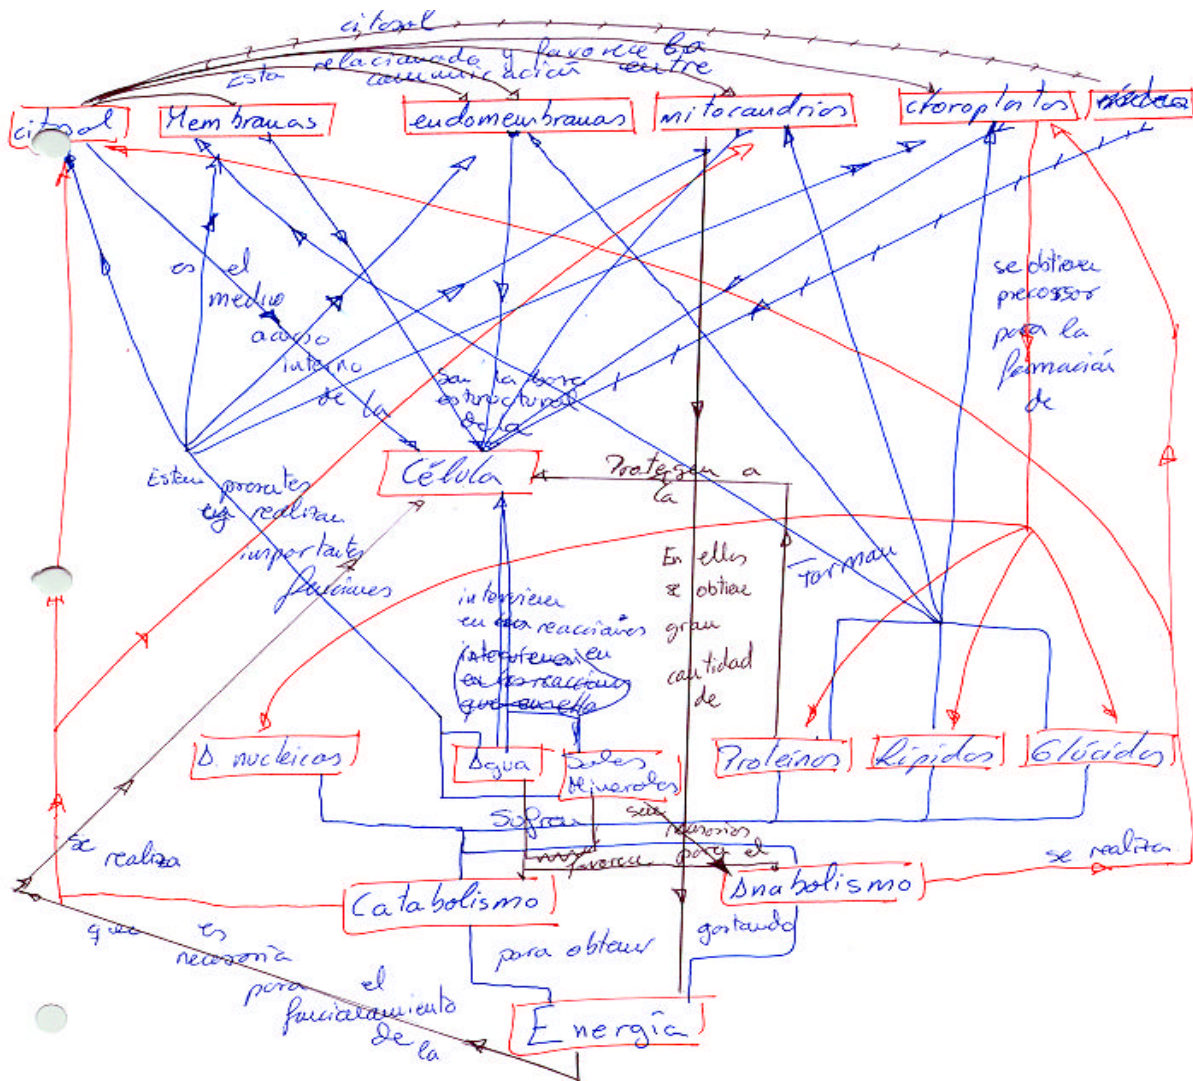 citosol
Esta relacionado y favorece la
comunicación entre
citosol
Membranas
endomembranas
mitocondrias
cloroplastos
es el
medio
acuoso
interno
de la
Son la base
estructural
de la
se obtienen
precossor
para la
formación
de
Célula
Protegen a
la
Estan presentes
realizan
importantes
funciones
En ellas
se obtiene
gran
cantidad
de
Forman
intervienen
en reacciones
A. nucleicos
Agua
Sales
Minerales
Proteínas
Lípidos
Glúcidos
Sufren
son
necesarios
para el
favorece
se
realiza
se realiza
Catabolismo
Anabolismo
que es
necesaria
para el
funcionamiento
de la
para obtener
gastando
Energía